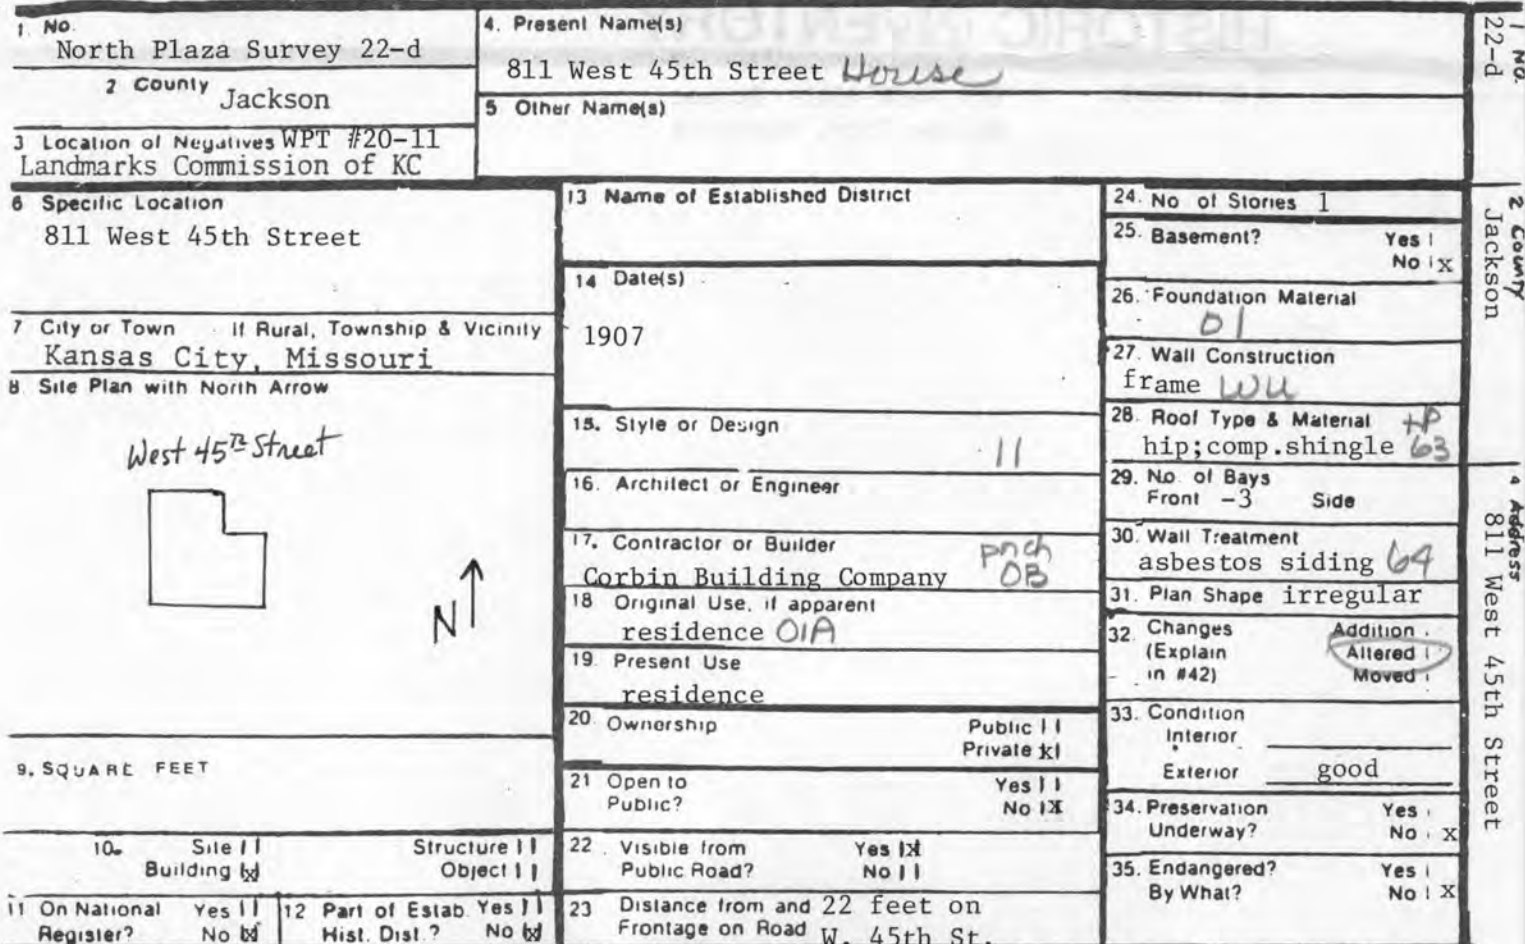 1. No.
North Plaza Survey 22-d
2 County
Jackson
3 Location of Negatives WPT #20-11
Landmarks Commission of KC
4. Present Name(s)
811 West 45th Street House
5 Other Name(s)
6 Specific Location
811 West 45th Street
7 City or Town If Rural, Township & Vicinity
Kansas City, Missouri
8. Site Plan with North Arrow
West 45TH Street
N
9. SQUARE FEET
10. Site
Structure
Building X
Object
11 On National Register? Yes
No X
12 Part of Estab. Hist. Dist.? Yes
No X
13 Name of Established District
14 Date(s)
1907
15. Style or Design
11
16. Architect or Engineer
17. Contractor or Builder
Corbin Building Company
pnch
OB
18 Original Use, if apparent
residence 01A
19. Present Use
residence
20. Ownership
Public
Private x
21 Open to Public?
Yes
No X
22. Visible from Public Road?
Yes X
No
23 Distance from and Frontage on Road
22 feet on
W. 45th St.
24. No. of Stories 1
25. Basement? Yes
No x
26. Foundation Material
01
27. Wall Construction
frame WU
28. Roof Type & Material HP
hip;comp.shingle 63
29. No. of Bays
Front -3 Side
30. Wall Treatment
asbestos siding 64
31. Plan Shape irregular
32. Changes (Explain in #42)
Addition
Altered
Moved
33. Condition
Interior
Exterior good
34. Preservation Underway?
Yes
No x
35. Endangered? By What?
Yes
No X
1 No.
22-d
2 County
Jackson
4 Address
811 West 45th Street